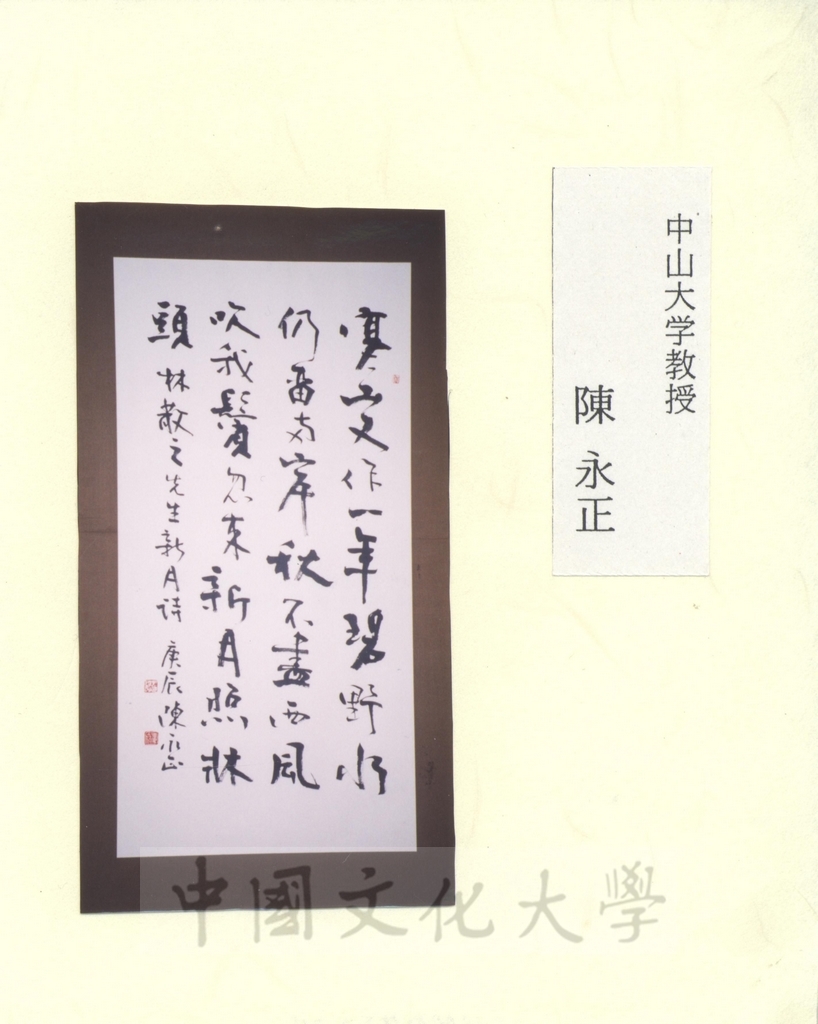 中山大学教授
陳 永正
寒山又作一年碧野水
仍留兩岸秋不盡西風
吹我鬢忽來新月照牀
頭 林散之先生新月詩 庚辰 陳永正
中國文化大學